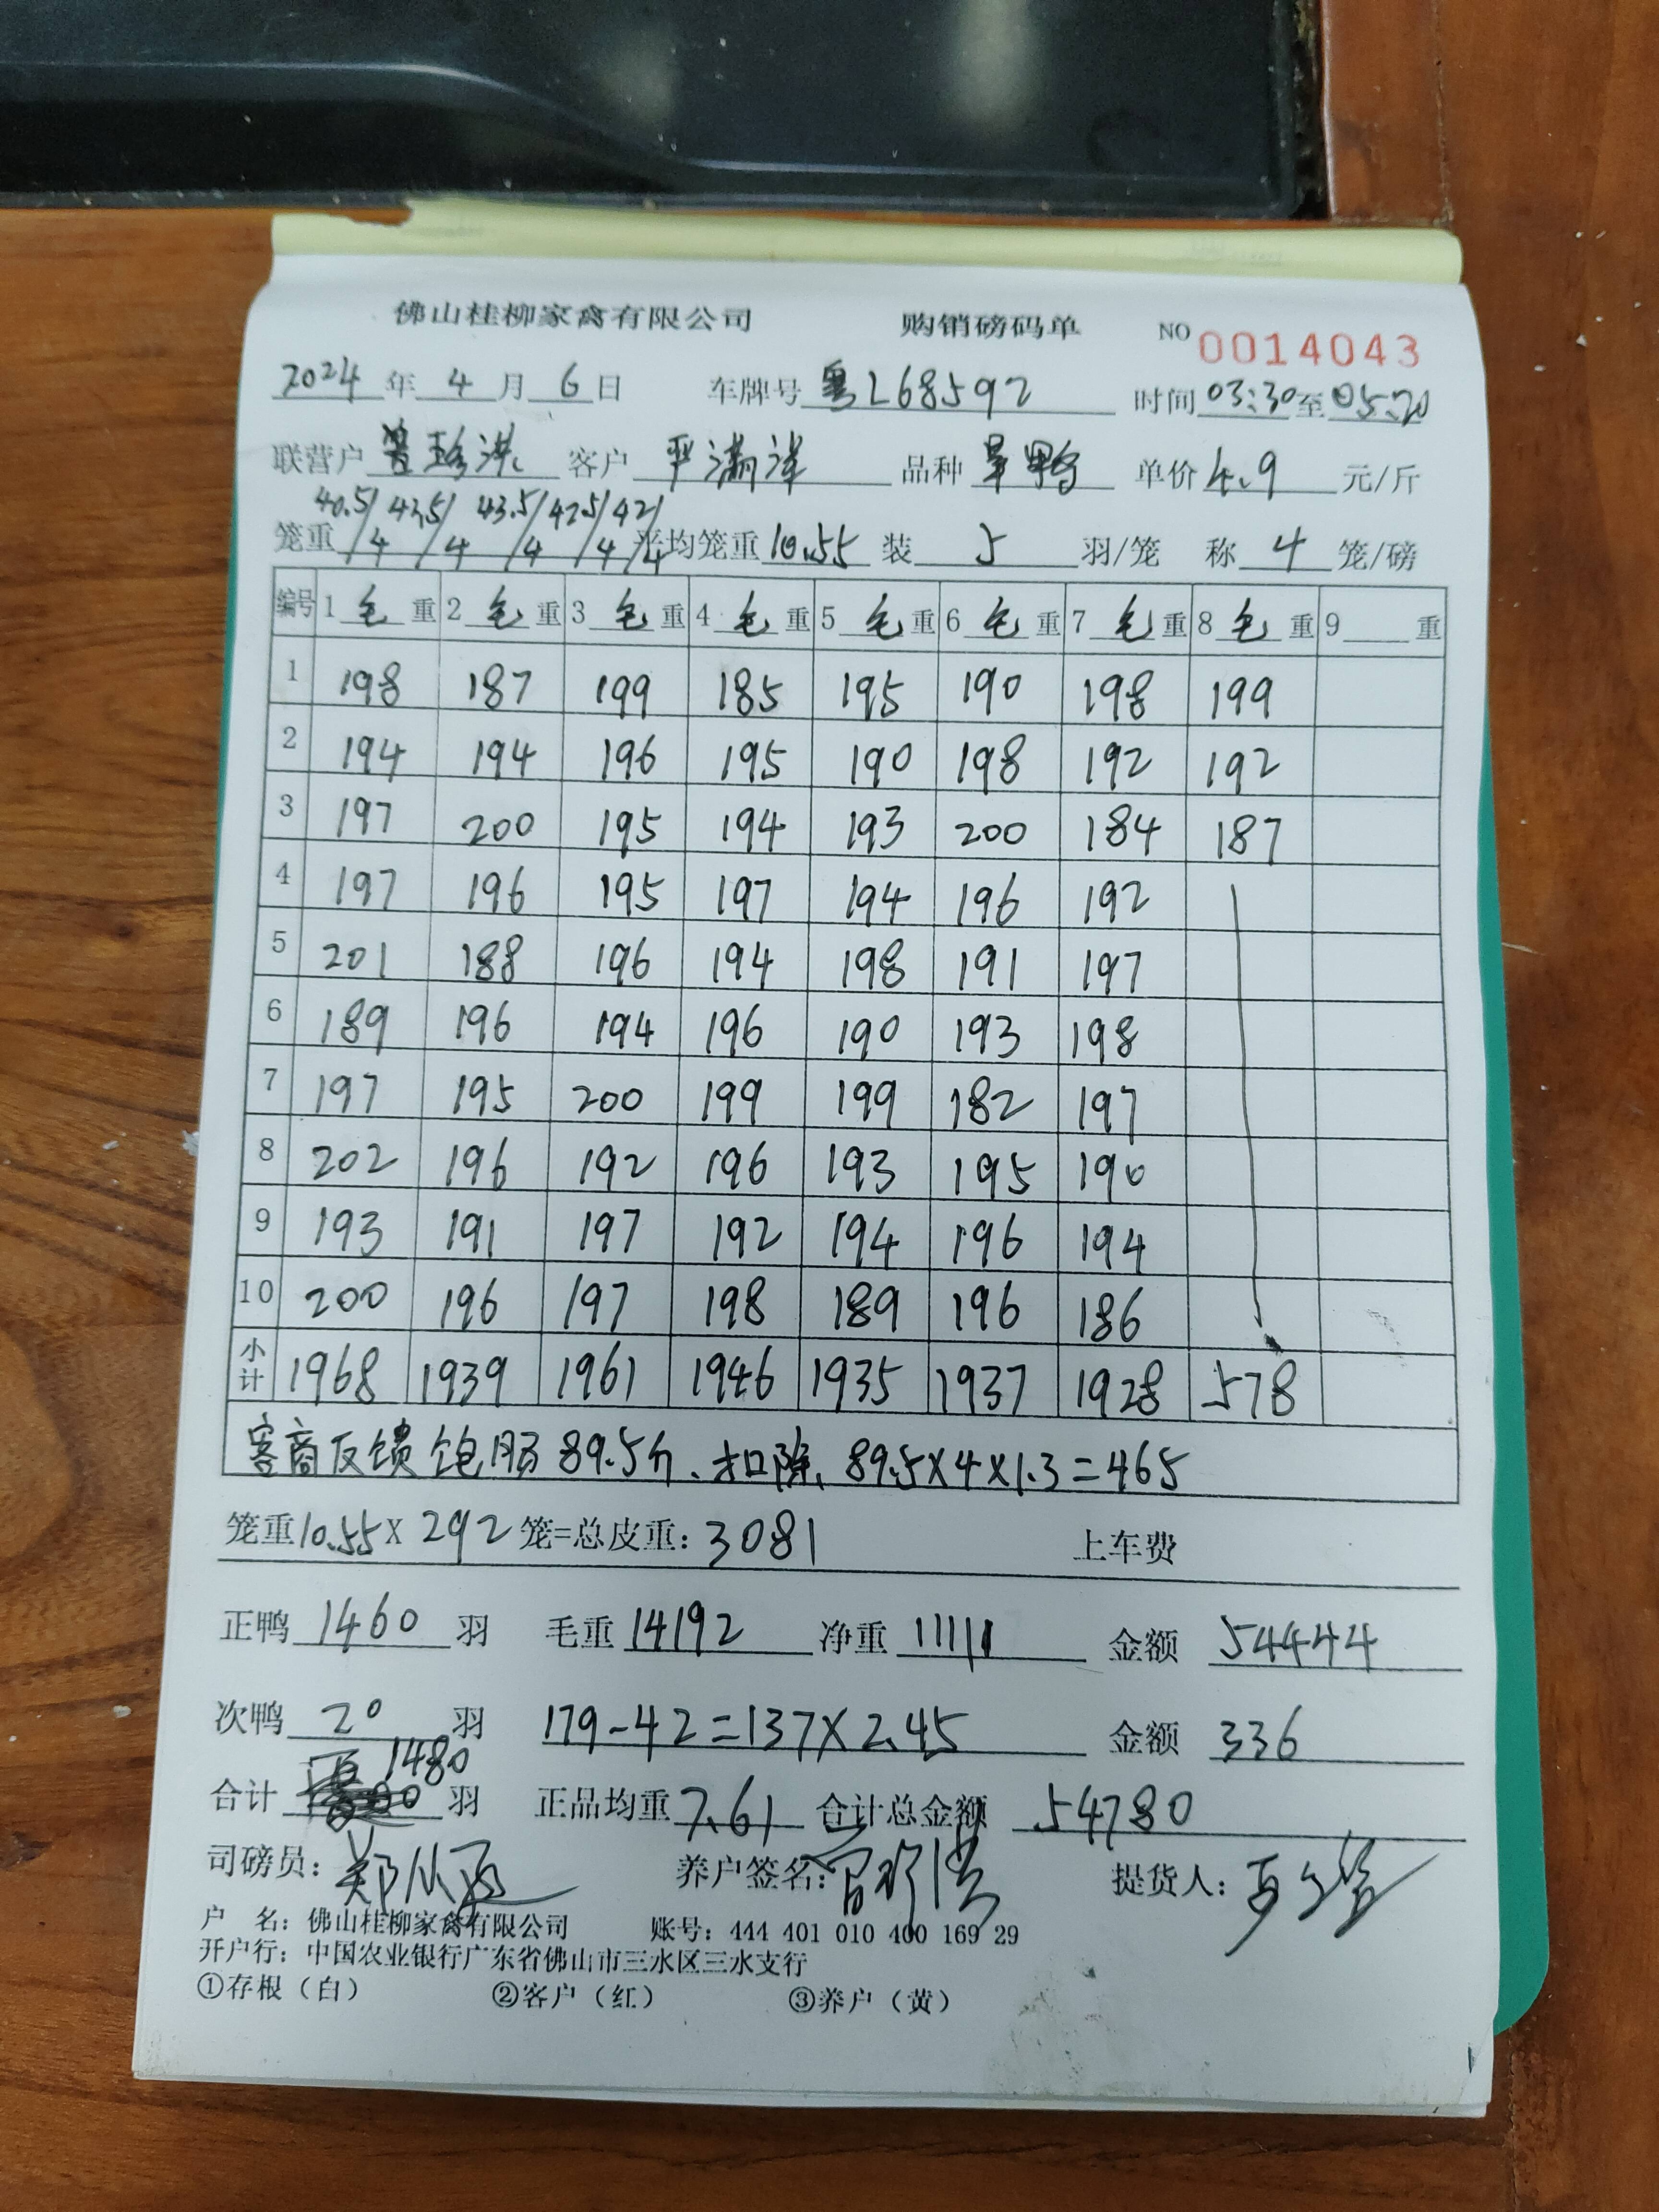 佛山桂柳家禽有限公司 购销磅码单 NO 0014043
2024 年 4 月 6 日 车牌号 粤L68592 时间 03:30 至 05:20
联营户 客户 严满泽 品种 旱鸭 单价 4.9 元/斤
笼重 40.5/4 43.5/4 43.5/4 42.5/4 42/4 平均笼重 10.55 装 5 羽/笼 称 4 笼/磅
编号 1 毛 重 2 毛 重 3 毛 重 4 毛 重 5 毛 重 6 毛 重 7 毛 重 8 毛 重 9 重
1 198 187 199 185 195 190 198 199
2 194 194 196 195 190 198 192 192
3 197 200 195 194 193 200 184 187
4 197 196 195 197 194 196 192
5 201 188 196 194 198 191 197
6 189 196 194 196 190 193 198
7 197 195 200 199 199 182 197
8 202 196 192 196 193 195 190
9 193 191 197 192 194 196 194
10 200 196 197 198 189 196 186
小计 1968 1939 1961 1946 1935 1937 1928 578
客商反馈饱肠89.5斤、扣除、89.5×4×1.3=465
笼重10.55X 292 笼=总皮重: 3081 上车费
正鸭 1460 羽 毛重 14192 净重 11111 金额 54444
次鸭 20 羽 179-42=137×2.45 金额 336
合计 1480 羽 正品均重 7.61 合计总金额 54780
司磅员: 养户签名: 提货人:
户 名: 佛山桂柳家禽有限公司 账号: 444 401 010 400 169 29
开户行: 中国农业银行广东省佛山市三水区三水支行
①存根（白） ②客户（红） ③养户（黄）